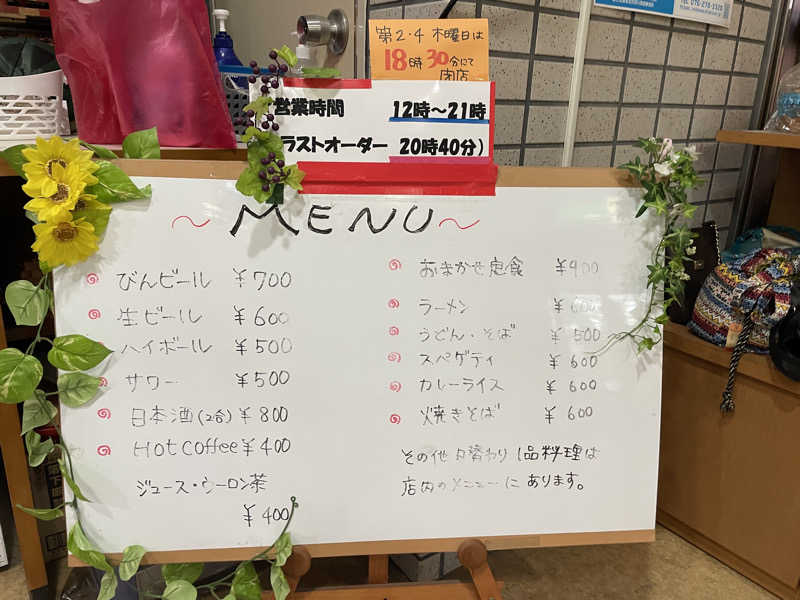 TEL 076-278-3320
第2・4 木曜日は
18時30分にて
閉店
営業時間 12時～21時
ラストオーダー 20時40分)
～MENU～
びんビール ¥700
生ビール ¥600
ハイボール ¥500
サワー ¥500
日本酒(2合) ¥800
Hot Coffee ¥400
ジュース・ウーロン茶
¥400
おまかせ定食 ¥900
ラーメン ¥600
うどん・そば ¥500
スパゲティ ¥600
カレーライス ¥600
焼きそば ¥600
その他日替わり1品料理は
店内のメニューにあります。